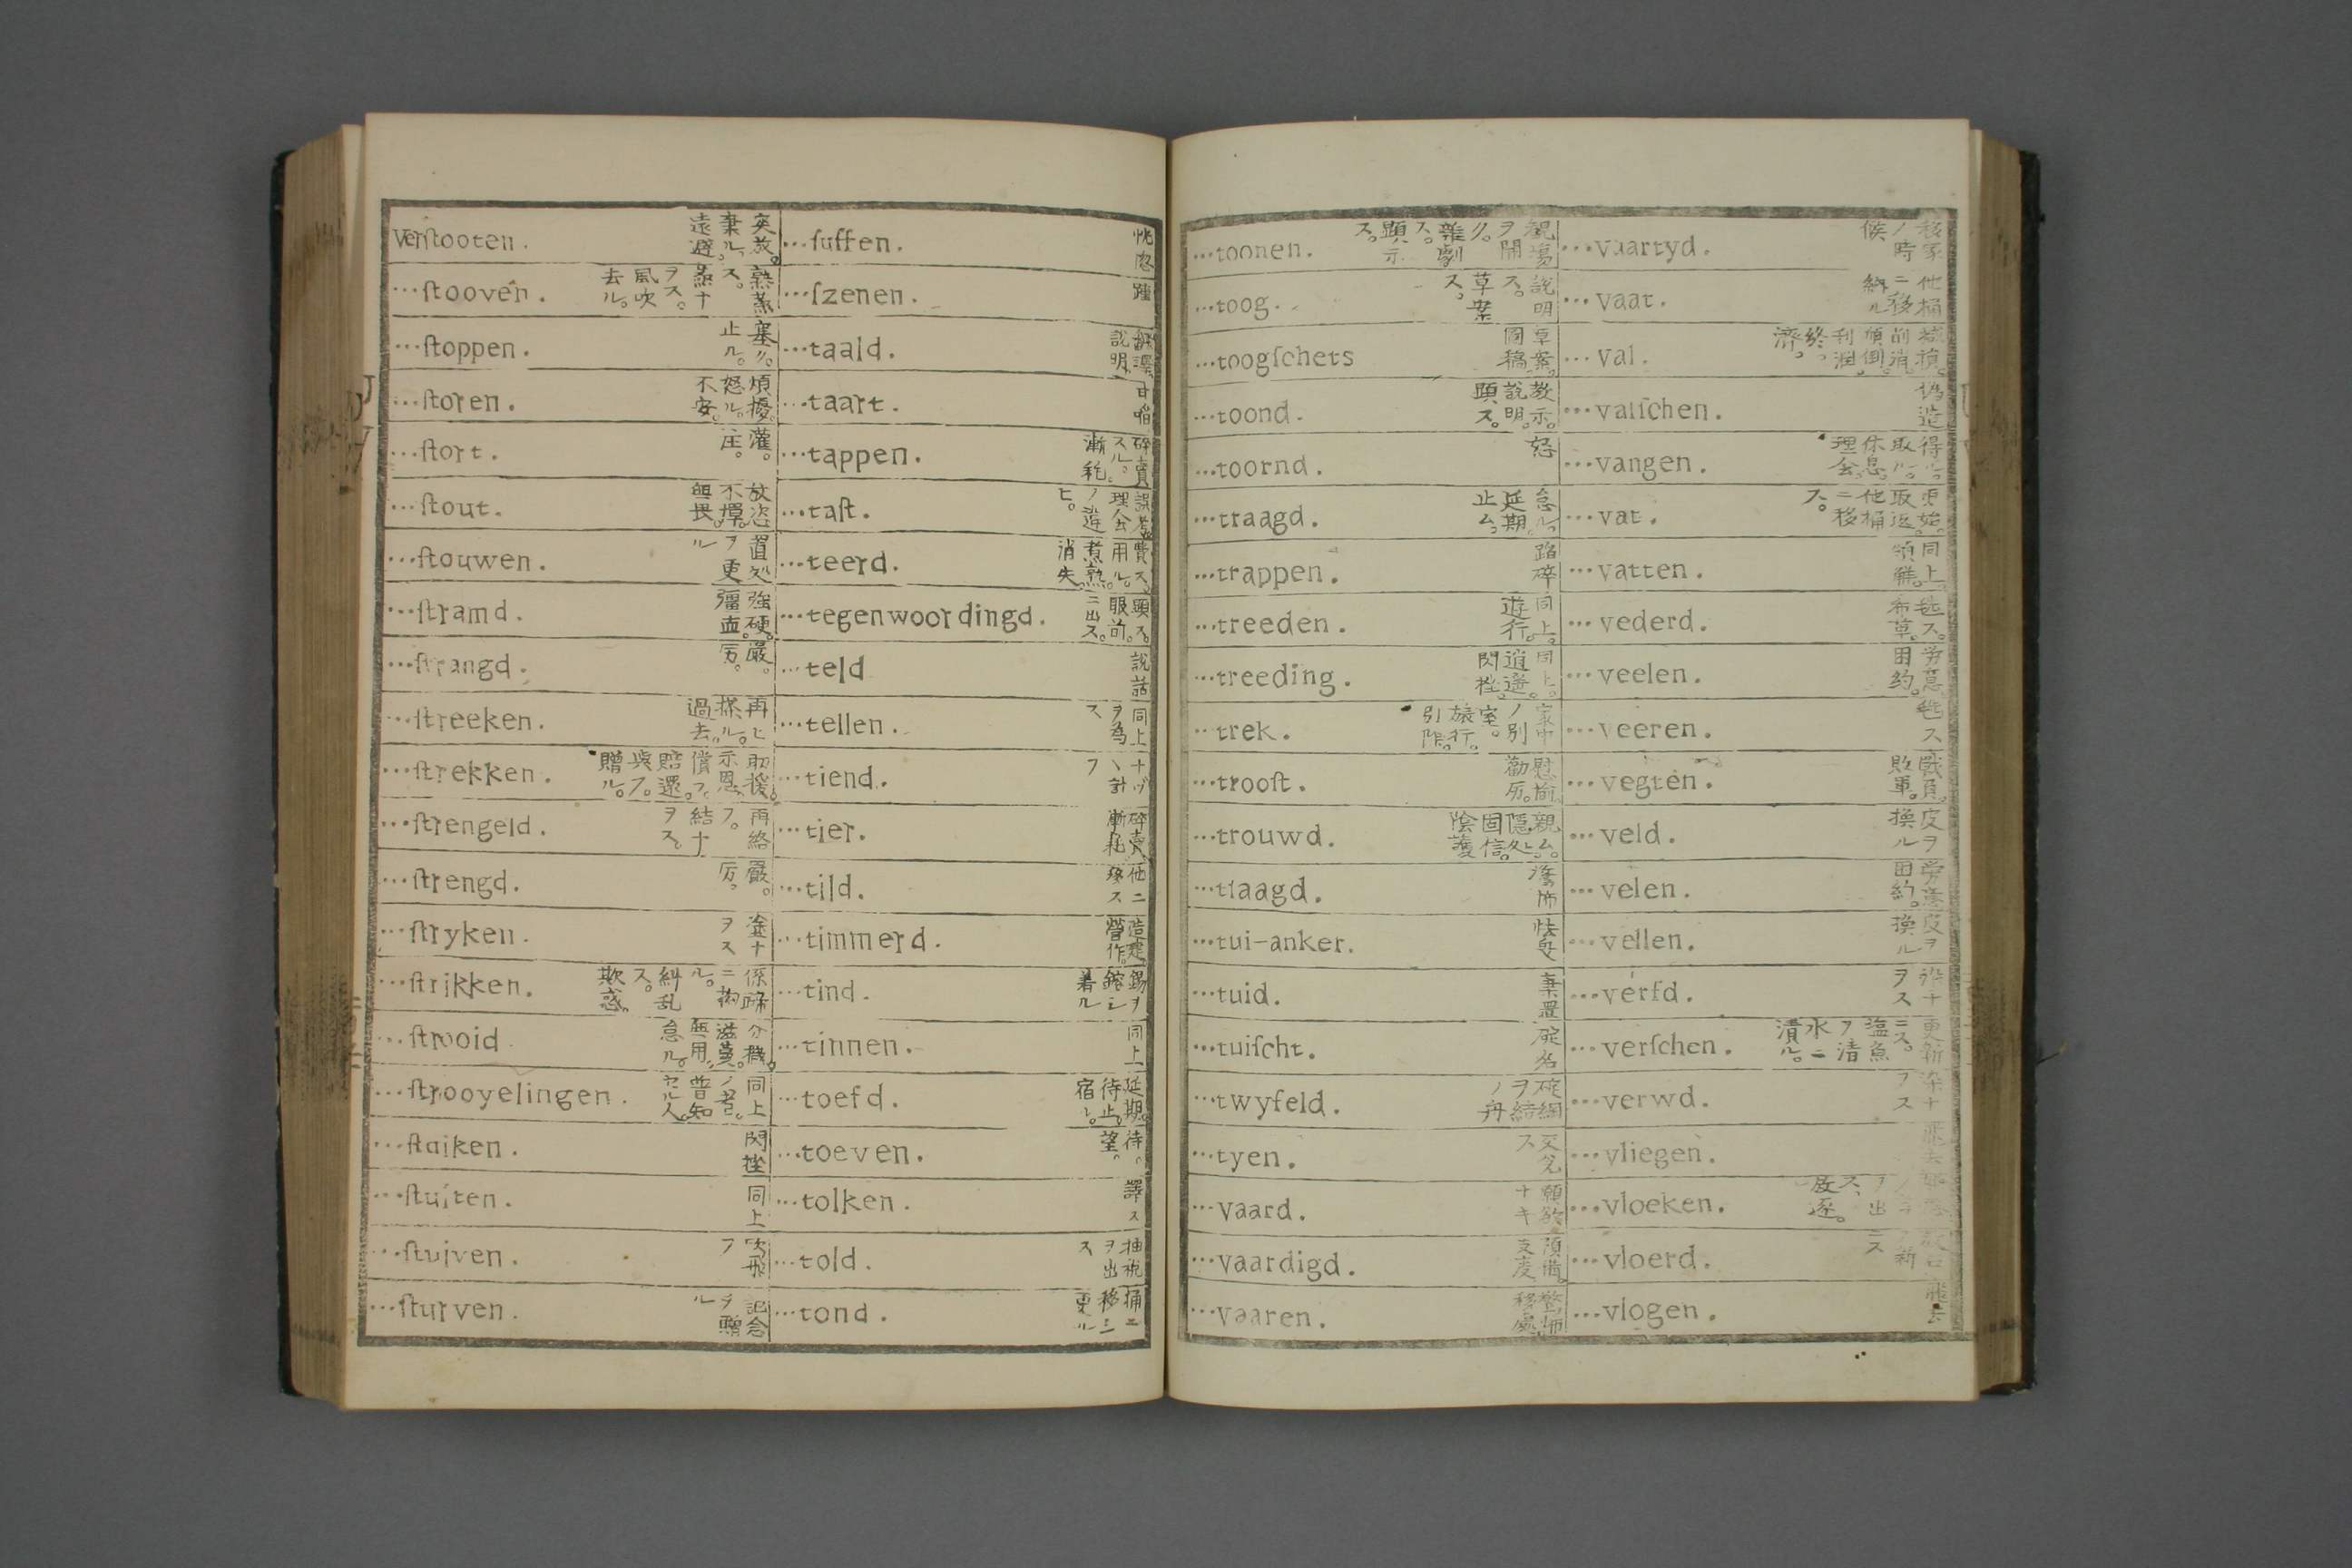 Verſtooten.
突放。棄ル。遠避。
…ſtooven.
熟蒸ス。蒸ナヲス。風吹去ル。
…ſtoppen.
塞ク。止ル。
…ſtoren.
煩擾。怒ル。不安。
…ſtort.
灌。注。
…ſtout.
放恣。不憚。無畏。
…ſtouwen.
置処ヲ更ル
…ſtramd.
強硬。彊血。
…ſtrangd.
嚴。厉。
…ſtreeken.
再ヒ搽ル。過去。
…ſtrekken.
取援。示恩。償フ。賠還。與フ。贈ル。
…ſtrengeld.
再絡フ。結ナヲス。
…ſtrengd.
嚴。厉。
…ſtryken.
塗ナヲス
…ſtrikken.
係蹄ニ拘ル。糾乱ス。欺惑。
…ſtrooid
分散。滋蔓。無用。怠ル。
…ſtrooyelingen.
同上ノ君。普知セル人。
…ſtuiken.
閃挫
…ſtuiten.
同上
…ſtuiven.
吹飛フ
…ſturven.
記念ヲ贈ル
…ſuffen.
…ſzenen.
踵
…taald.
飜譯。説明。
…taart.
…tappen.
碎賣スル。漸耗。
…taſt.
…teerd.
費ス。用ル。煮熟。消失
…tegenwoordingd.
顕ス。眼前。ニ出ス。
…teld
説話
…tellen.
同上ヲ為ス
…tiend.
十ヅヽ計フ
…tier.
碎賣漸耗
…tild.
他ニ移ス
…timmerd.
造建。營作。
…tind.
錫ヲ鎔シ着ル
…tinnen.
同上
…toefd.
延期。待止。宿ㇾ。
…toeven.
待。望。
…tolken.
譯ス
…told.
抽税ヲ出ス
…tond.
桶ニ移シ更ル
…toonen.
観場ヲ開ク。雜劇ス。顕示ス。
…toog.
説明ス。草案ス。
…toogſchets
草案。圖稿
…toond.
教示。説明。顕ス。
…toornd.
怒
…traagd.
怠ル。延期。止ム。
…trappen.
蹈碎
…treeden.
同上。遊行。
…treeding.
同上。逍遥。閃挫。
…trek.
家中ノ別室。旅行。引陷。
…trooſt.
慰諭。勸厉。
…trouwd.
親ム。隱処。固信。陰護。
…tſaagd.
…tui-anker.
…tuid.
棄置
…tuiſcht.
…twyfeld.
…tyen.
…vaard.
願欲ナキ
…vaardigd.
預備。支度
…vaaren.
移處
…vaartyd.
移家ノ時候
…vaat.
他桶ニ移納ル
…val.
減損。削消。傾倒。利潤。終。済。
…valſchen.
偽造
…vangen.
得ル。取ル。休息。理会。
…vat.
更始。取返。他桶ニ移ス。
…vatten.
同上。領雑。
…vederd.
…veelen.
労意。困約。
…veeren.
…vegten.
戦負。敗軍。
…veld.
皮ヲ換ル
…velen.
労意。困約。
…vellen.
皮ヲ換ル
…verfd.
染ナヲス
…verſchen.
更新ニス。塩魚ヲ清水ニ漬ル。
…verwd.
染ナヲス
…vliegen.
飛去
…vloeken.
…vloerd.
…vlogen.
飛去